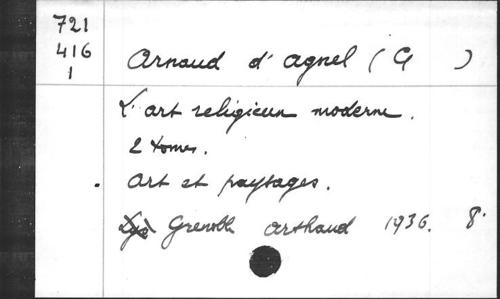 721
416
1
Arnaud d'Agnel (G )
L'art religieux moderne.
2 tomes.
Art et paysages.
Grenoble Arthaud 1936. 8°